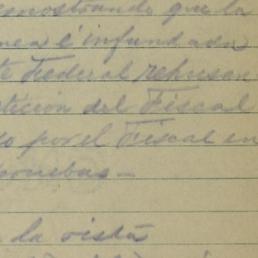 emostrando que la
nea é infundada
te Federal rehusan
tición del Fiscal
o por el Fiscal en
pruebas —
la vista